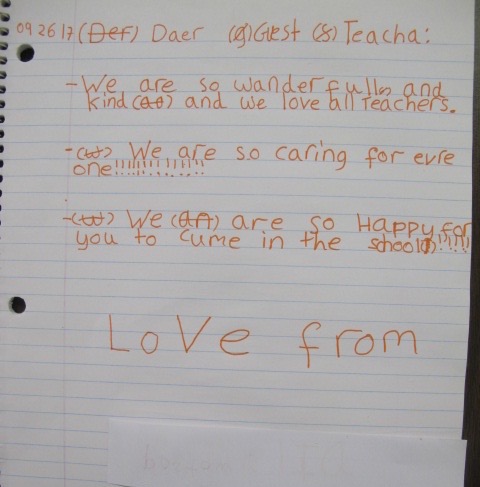 09 26 17 (Def) Daer (g)Gest (s) Teacha:
- We are so wanderfulln and
kind (at) and we love all Teachers.
- (w) We are so caring for evre
one!!!!!!!!!!!!
- (w) We (an) are so Happy for
you to cume in the school!!!!!
Love from